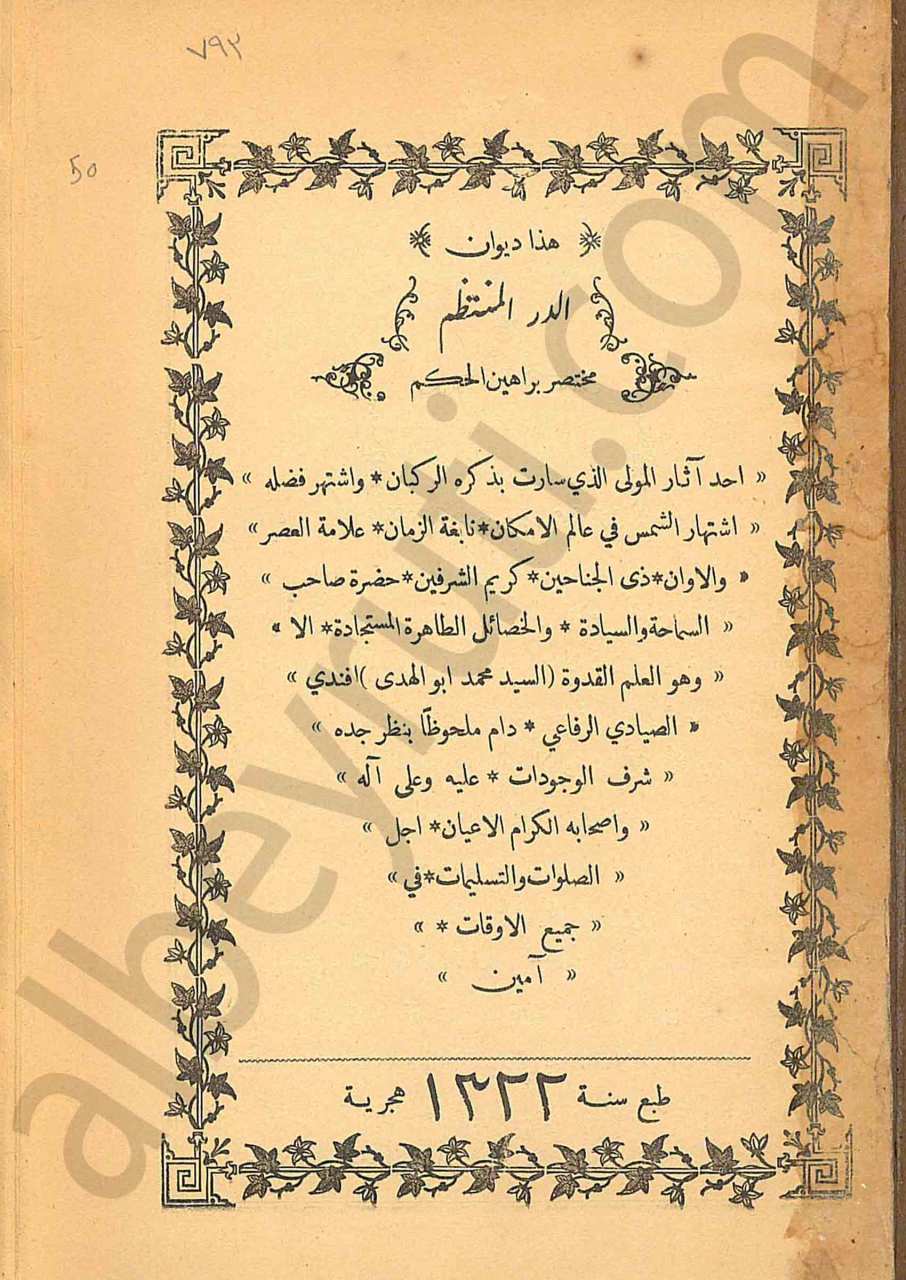 ٧٩٢
50
هذا ديوان
الدر المنتظم
مختصر براهين الحكم
« احد آثار المولى الذي سارت بذكره الركبان* واشتهر فضله »
« اشتهار الشمس في عالم الامكان*نابغة الزمان* علامة العصر »
« والاوان*ذى الجناحين* كريم الشرفين*حضرة صاحب »
« السماحة والسيادة * والخصائل الطاهرة المستجادة* الا »
« وهو العلم القدوة (السيد محمد ابو الهدى )افندي »
« الصيادي الرفاعي * دام ملحوظًا بنظر جده »
« شرف الوجودات * عليه وعلى آله »
« واصحابه الكرام الاعيان* اجل »
« الصلوات والتسليمات*في »
« جميع الاوقات * »
« آمين »
طبع سنة ١٣٢٢ هجرية
albeyruti.com